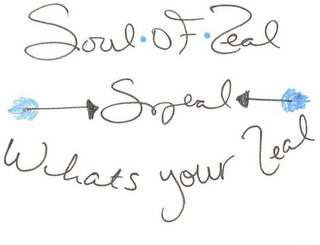 Soul · Of · Zeal
Sozeal
Whats your Zeal